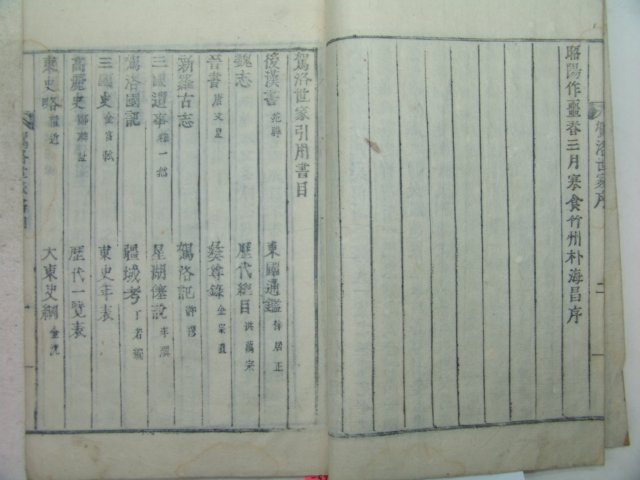 昭陽作噩春三月寒食竹州朴海昌序
駕洛世家序 二
駕洛世家引用書目
後漢書 范曄 東國通鑑 徐居正
魏志 歷代總目 洪萬宗
晉書 唐文皇 彛尊錄 金宗直
新羅古志 駕洛記 許
三國遺事 釋一然 星湖僿說 李瀷
駕洛國記 疆域考 丁若鏞
三國史 金富軾 東史年表
高麗史 鄭麟趾 歷代一覽表
東史略 權近 大東史綱 金洸
駕洛世家 目 一